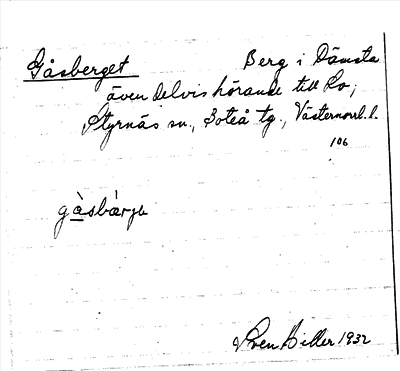 Gåsberget Berg i Dämsta
även delvis hörande till Lo,
Styrnäs sn., Boteå tg., Västernorrl. l.
106
gàsbärjə
Sven Hiller 1932